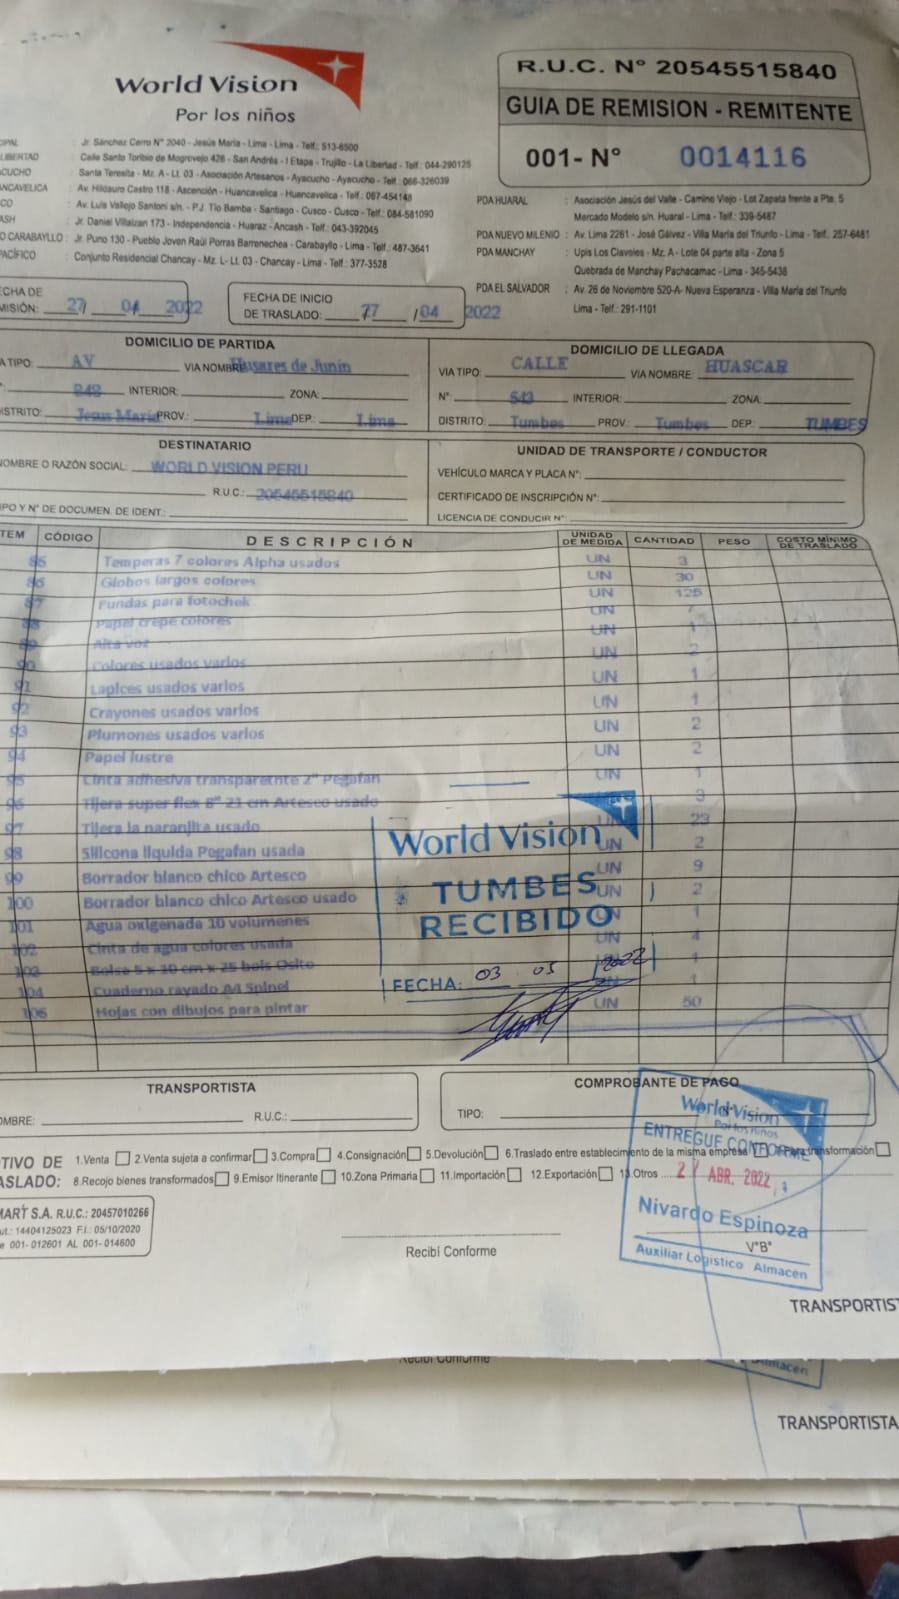 World Vision
Por los niños
R.U.C. N° 20545515840
GUIA DE REMISION - REMITENTE
001- N° 0014116
CIPAL : Jr. Sánchez Cerro N° 2040 - Jesús María - Lima - Lima - Telf.: 513-6500
LIBERTAD : Calle Santo Toribio de Mogrovejo 426 - San Andrés - I Etapa - Trujillo - La Libertad - Telf : 044-290125
CUCHO : Santa Teresita - Mz. A - Lt. 03 - Asociación Artesanos - Ayacucho - Ayacucho - Telf : 066-326039
ANCAVELICA : Av. Hildauro Castro 118 - Ascención - Huancavelica - Huancavelica - Telf : 067-454148
CO : Av. Luis Vallejo Santoni s/n. - P.J. Tío Bamba - Santiago - Cusco - Cusco - Telf.: 084-581090
ASH : Jr. Daniel Villaizan 173 - Independencia - Huaraz - Ancash - Telf: 043-392045
O CARABAYLLO : Jr. Puno 130 - Pueblo Joven Raúl Porras Barrenechea - Carabayllo - Lima - Telf.: 487-3641
PACÍFICO : Conjunto Residencial Chancay - Mz. L- Lt. 03 - Chancay - Lima - Telf.: 377-3528
PDA HUARAL : Asociación Jesús del Valle - Camino Viejo - Lot Zapata frente a Pta. 5
Mercado Modelo s/n. Huaral - Lima - Telf.: 339-5487
PDA NUEVO MILENIO : Av. Lima 2261 - José Gálvez - Villa María del Triunfo - Lima - Telf.: 257-6481
PDA MANCHAY : Upis Los Claveles - Mz. A - Lote 04 parte alta - Zona 5
Quebrada de Manchay Pachacamac - Lima - 345-5438
PDA EL SALVADOR : Av. 26 de Noviembre 520-A- Nueva Esperanza - Villa María del Triunfo
Lima - Telf.: 291-1101
ECHA DE
MISIÓN: 27 04 2022
FECHA DE INICIO
DE TRASLADO: 27 /04 2022
DOMICILIO DE PARTIDA
A TIPO: AV VIA NOMBRE Husares de Junin
INTERIOR: ZONA:
ISTRITO: Jesus Maria PROV.: Lima DEP.: Lima
DOMICILIO DE LLEGADA
VIA TIPO: CALLE VIA NOMBRE: HUASCAR
N°: 543 INTERIOR: ZONA:
DISTRITO: Tumbes PROV.: Tumbes DEP.: TUMBES
DESTINATARIO
NOMBRE O RAZÓN SOCIAL: WORLD VISION PERU
R.U.C.: 20545515840
IPO Y N° DE DOCUMEN. DE IDENT.:
UNIDAD DE TRANSPORTE / CONDUCTOR
VEHÍCULO MARCA Y PLACA N°:
CERTIFICADO DE INSCRIPCIÓN N°:
LICENCIA DE CONDUCIR N°:
TEM CÓDIGO DESCRIPCIÓN UNIDAD DE MEDIDA CANTIDAD PESO COSTO MÍNIMO DE TRASLADO
85 Temperas 7 colores Alpha usados UN 3
86 Globos largos colores UN 30
87 Fundas para fotochek UN 125
88 Papel crepe colores UN 7
89 Alta voz UN 1
90 Colores usados varios UN 2
91 Lapices usados varios UN 1
92 Crayones usados varios UN 1
93 Plumones usados varios UN 2
94 Papel lustre UN 2
95 Cinta adhesiva transparernte 2" Pegafan UN 1
96 Tijera super flex 8" 21 cm Artesco usado 3
97 Tijera la naranjita usado UN 23
98 Silicona liquida Pegafan usada UN 2
99 Borrador blanco chico Artesco UN 9
100 Borrador blanco chico Artesco usado UN 2
101 Agua oxigenada 10 volumenes UN 1
102 Cinta de agua colores usada UN 4
103 Bolsa 5 x 10 cm x 25 bols Osito 1
104 Cuaderno rayado A4 Spinel UN 1
Hojas con dibujos para pintar UN 50
World Vision
TUMBES
RECIBIDO
FECHA: 03 05 2022
TRANSPORTISTA
OMBRE: R.U.C.:
COMPROBANTE DE PAGO
TIPO: N°:
World Vision
Por los niños
ENTREGUE CONFORME
27 ABR. 2022
Nivardo Espinoza
V°B°
Auxiliar Logístico Almacén
OTIVO DE
ASLADO:
1.Venta 2.Venta sujeta a confirmar 3.Compra 4.Consignación 5.Devolución 6.Traslado entre establecimiento de la misma empresa transformación
8.Recojo bienes transformados 9.Emisor Itinerante 10.Zona Primaria 11.Importación 12.Exportación 13.Otros
MART S.A. R.U.C.: 20457010266
ut.: 14404125023 F.I.: 05/10/2020
e 001- 012601 AL 001- 014600
Recibí Conforme
TRANSPORTIS
Recibí Conforme
Almacén
TRANSPORTISTA